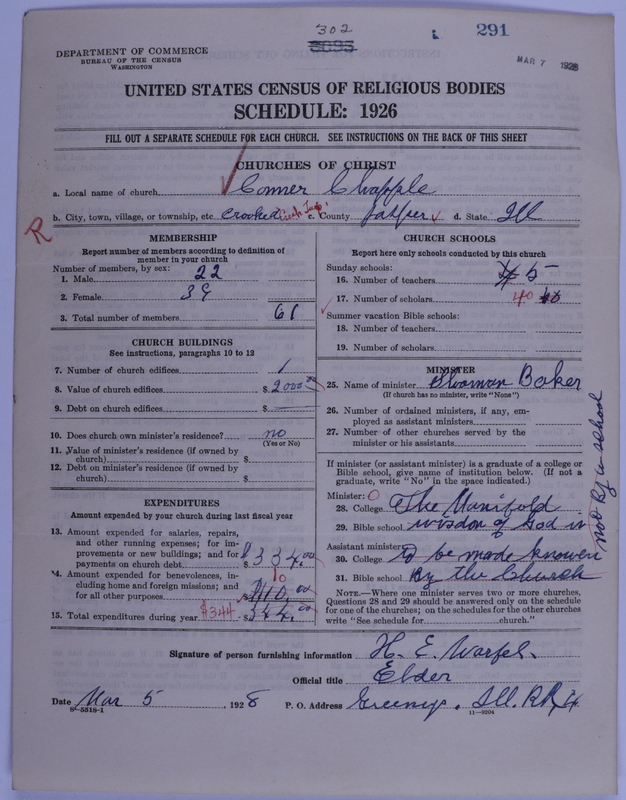 302
3095
291
DEPARTMENT OF COMMERCE
BUREAU OF THE CENSUS
WASHINGTON
MAR 7 1928
UNITED STATES CENSUS OF RELIGIOUS BODIES
SCHEDULE: 1926
FILL OUT A SEPARATE SCHEDULE FOR EACH CHURCH. SEE INSTRUCTIONS ON THE BACK OF THIS SHEET
CHURCHES OF CHRIST
a. Local name of church Conner Chapple
b. City, town, village, or township, etc. Crooked Creek Twp. c. County Jasper d. State Ill
R
MEMBERSHIP
Report number of members according to definition of
member in your church
Number of members, by sex:
1. Male 22
2. Female 39
3. Total number of members 61
CHURCH BUILDINGS
See instructions, paragraphs 10 to 12
7. Number of church edifices 1
8. Value of church edifices $ 2000 00
9. Debt on church edifices $
10. Does church own minister's residence? no
(Yes or No)
11. Value of minister's residence (if owned by
church) $
12. Debt on minister's residence (if owned by
church) $
EXPENDITURES
Amount expended by your church during last fiscal year
13. Amount expended for salaries, repairs,
and other running expenses; for im-
provements or new buildings; and for
payments on church debt $ 334.00
14. Amount expended for benevolences, in-
cluding home and foreign missions; and
for all other purposes $ 10.00
10
15. Total expenditures during year $344 $ 344.00
CHURCH SCHOOLS
Report here only schools conducted by this church
Sunday schools:
16. Number of teachers 5
17. Number of scholars 40
Summer vacation Bible schools:
18. Number of teachers
19. Number of scholars
MINISTER
25. Name of minister Baker
(If church has no minister, write "None")
26. Number of ordained ministers, if any, em-
ployed as assistant ministers
27. Number of other churches served by the
minister or his assistants
If minister (or assistant minister) is a graduate of a college or
Bible school, give name of institution below. (If not a
graduate, write "No" in the space indicated.)
Minister: 0
28. College The Manifold
29. Bible school wisdom of God is
Assistant minister:
30. College to be made known
31. Bible school By the Church
not By a school
NOTE.—Where one minister serves two or more churches,
Questions 28 and 29 should be answered only on the schedule
for one of the churches; on the schedules for the other churches
write "See schedule for church."
Signature of person furnishing information H. E. Warfel
Official title Elder
Date Mar 5, 1928 P. O. Address Greenup, Ill. RR 4
8-5518-1
11-9204